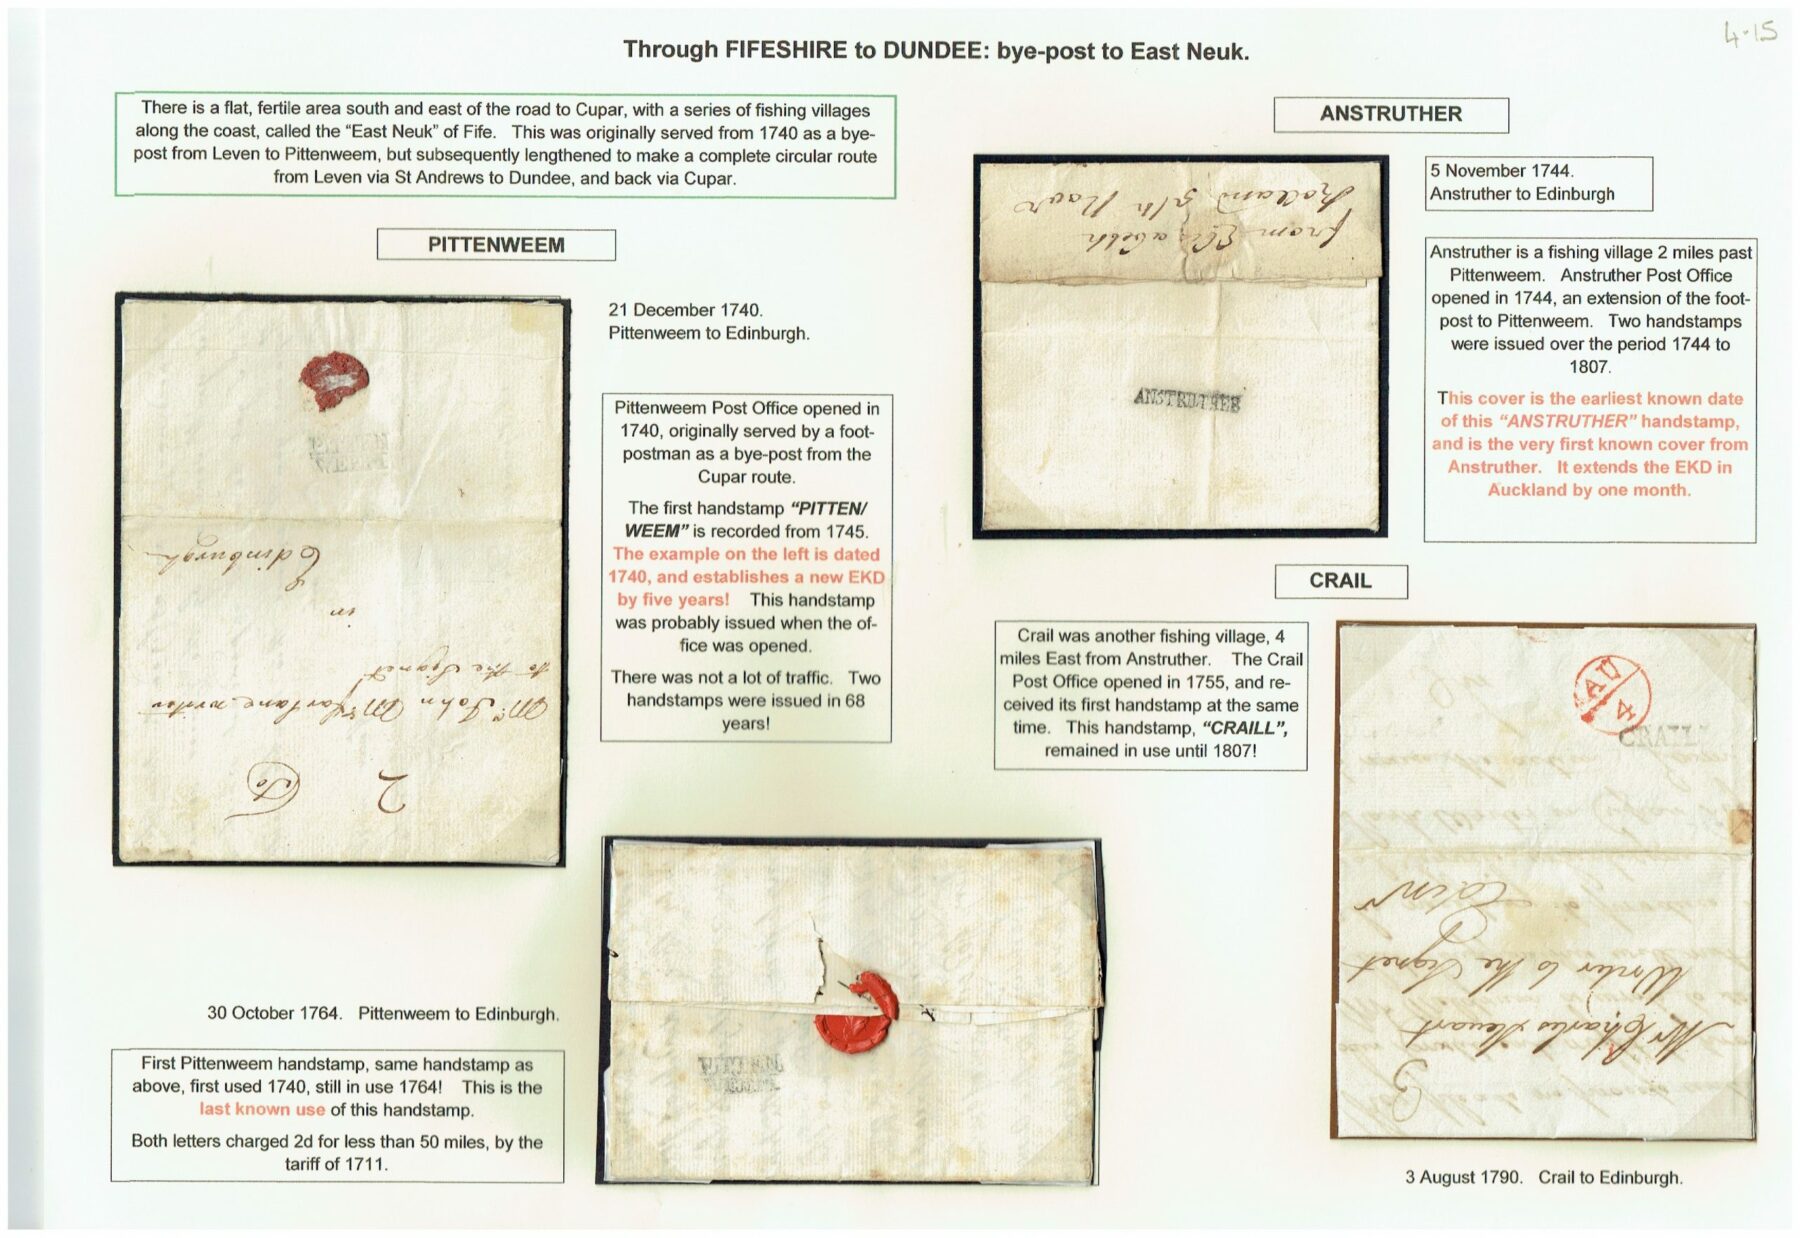 4.15
Through FIFESHIRE to DUNDEE: bye-post to East Neuk.
There is a flat, fertile area south and east of the road to Cupar, with a series of fishing villages
along the coast, called the “East Neuk” of Fife. This was originally served from 1740 as a bye-
post from Leven to Pittenweem, but subsequently lengthened to make a complete circular route
from Leven via St Andrews to Dundee, and back via Cupar.
PITTENWEEM
21 December 1740.
Pittenweem to Edinburgh.
PITTEN
WEEM
To
2
Mr. John McFarlane writer
to the Signet
in
Edinburgh
Pittenweem Post Office opened in
1740, originally served by a foot-
postman as a bye-post from the
Cupar route.
The first handstamp “PITTEN/
WEEM” is recorded from 1745.
The example on the left is dated
1740, and establishes a new EKD
by five years! This handstamp
was probably issued when the of-
fice was opened.
There was not a lot of traffic. Two
handstamps were issued in 68
years!
30 October 1764. Pittenweem to Edinburgh.
First Pittenweem handstamp, same handstamp as
above, first used 1740, still in use 1764! This is the
last known use of this handstamp.
Both letters charged 2d for less than 50 miles, by the
tariff of 1711.
PITTEN
WEEM
ANSTRUTHER
from Elisabeth
5th Novr
ANSTRUTHER
5 November 1744.
Anstruther to Edinburgh
Anstruther is a fishing village 2 miles past
Pittenweem. Anstruther Post Office
opened in 1744, an extension of the foot-
post to Pittenweem. Two handstamps
were issued over the period 1744 to
1807.
This cover is the earliest known date
of this “ANSTRUTHER” handstamp,
and is the very first known cover from
Anstruther. It extends the EKD in
Auckland by one month.
CRAIL
Crail was another fishing village, 4
miles East from Anstruther. The Crail
Post Office opened in 1755, and re-
ceived its first handstamp at the same
time. This handstamp, “CRAILL”,
remained in use until 1807!
AU
4
CRAILL
3
Mr Charles Steuart
Writer to the Signet
Edinr
3 August 1790. Crail to Edinburgh.